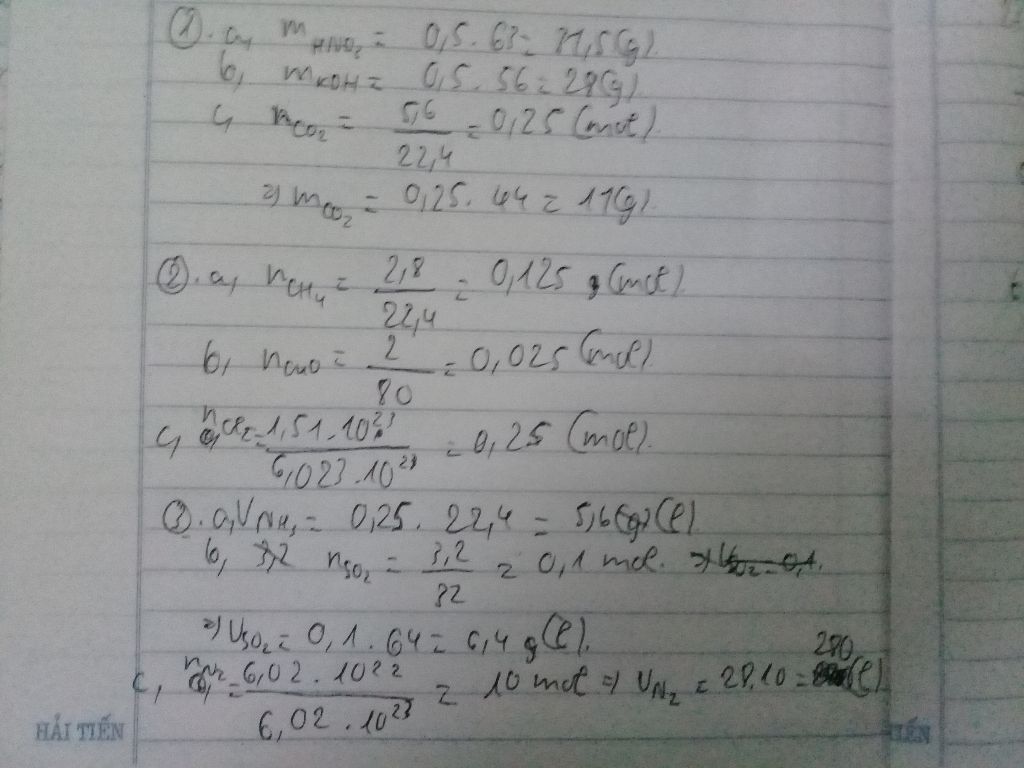 ①. a, mHNO3 = 0,5 . 63 = 31,5(g).
b, mKOH = 0,5 . 56 = 28(g).
c, nCO2 = 5,6/22,4 = 0,25 (mol).
=> mCO2 = 0,25 . 44 = 11(g).
②. a, nCH4 = 2,8/22,4 = 0,125 (mol)
b, nCuO = 2/80 = 0,025 (mol).
c, nCl2 = 1,51.10²³/6,023.10²³ = 0,25 (mol).
③. a, VNH3 = 0,25 . 22,4 = 5,6(g)(l)
b, 3,2 nSO2 = 3,2/32 = 0,1 mol. => VSO2 = 0,1.
=> VSO2 = 0,1 . 64 = 6,4 g (l).
c, nN2 = 6,02 . 10²²/6,02 . 10²³ = 10 mol => VN2 = 28.10 = 280 (l)
HẢI TIẾN
TIẾN